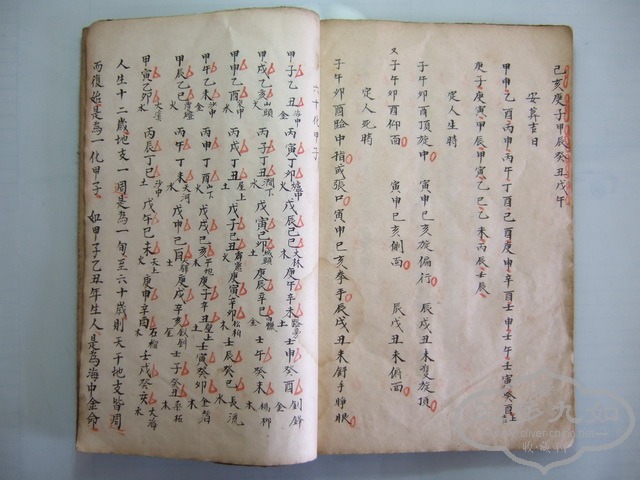 己亥庚子甲辰癸丑戊午
安葬吉日
甲申乙酉丙申丙午丁酉己酉庚申辛酉壬申壬午壬寅癸酉上
庚子庚寅甲辰甲寅乙巳乙未丙辰壬辰
定人生時
子午卯酉頂旋中 寅申巳亥旋偏行 辰戌丑未雙旋頂
又子午卯酉仰面 寅申巳亥側面 辰戌丑未俯面
定人死時
子午卯酉臉中指或張口寅申巳亥拳手辰戌丑未舒手睜眼
六十化甲子
甲子乙丑海中金丙寅丁卯爐中火戊辰己巳大林木庚午辛未路旁土壬申癸酉劍鋒金
甲戌乙亥山頭火丙子丁丑澗下水戊寅己卯城頭土庚辰辛巳白蠟金壬午癸未楊柳木
甲申乙酉泉中水丙戌丁亥屋上土戊子己丑霹靂火庚寅辛卯松柏木壬辰癸巳長流水
甲午乙未沙中金丙申丁酉山下火戊戌己亥平地木庚子辛丑壁上土壬寅癸卯金箔金
甲辰乙巳覆燈火丙午丁未天河水戊申己酉大驛土庚戌辛亥釵釧金壬子癸丑桑柘木
甲寅乙卯大溪水丙辰丁巳沙中土戊午己未天上火庚申辛酉石榴木壬戌癸亥大海水
人生十二歲地支一周是為一旬至六十歲則天干地支皆周
而復始是為一化甲子 如甲子乙丑年生人是為海中金命